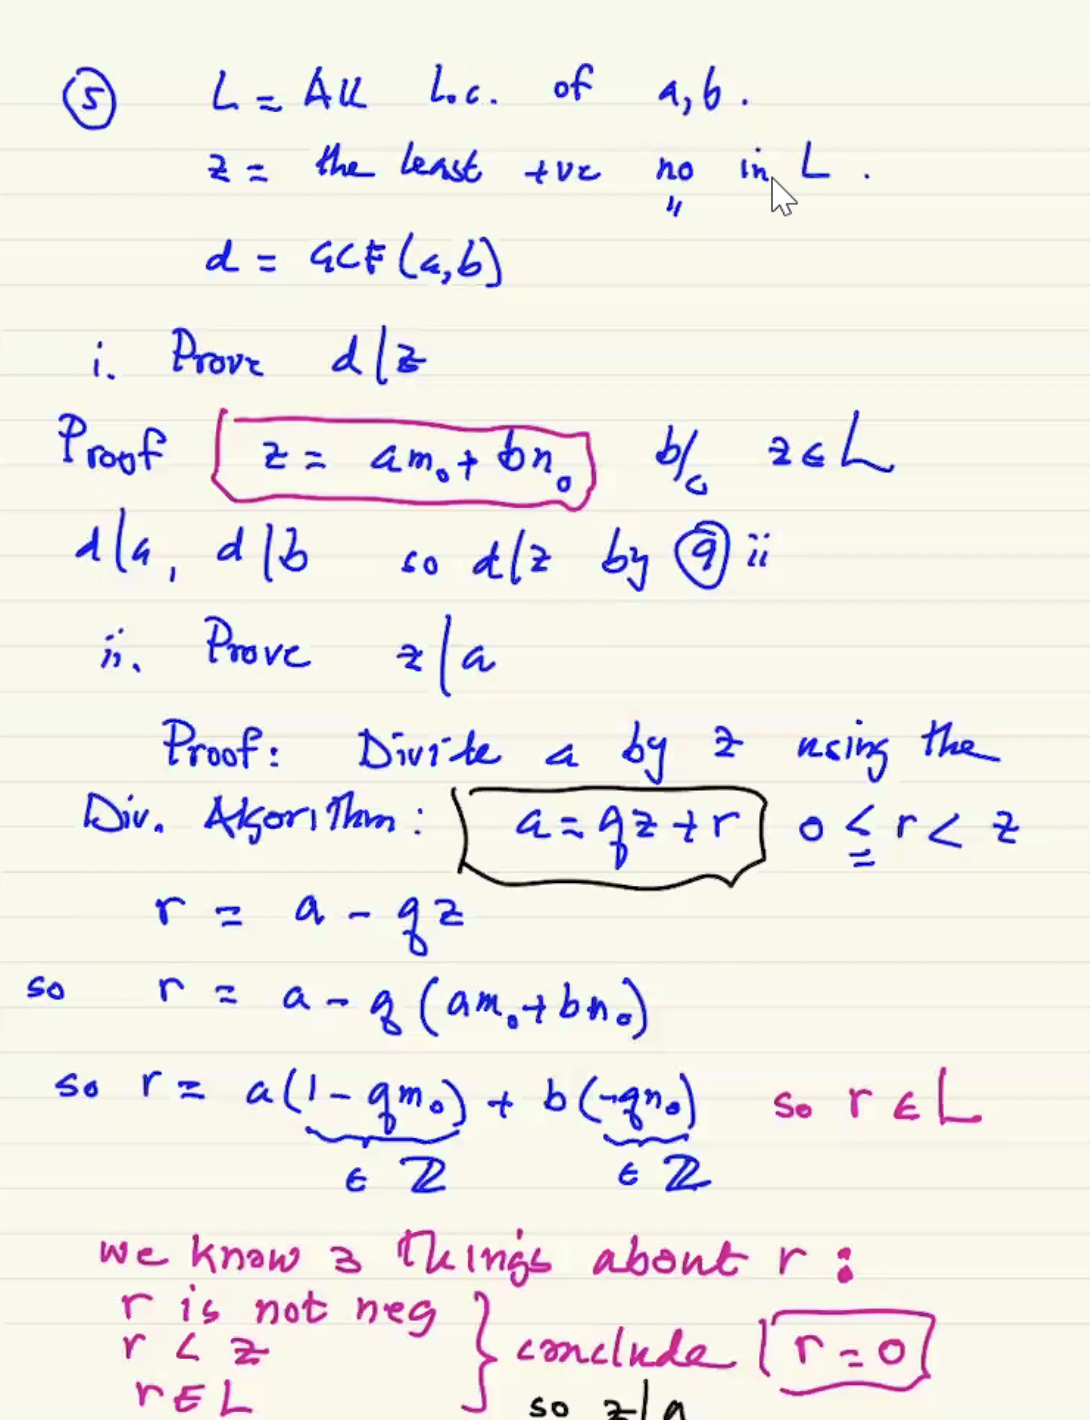 ⑤ L = All L.c. of a, b.
z = the least +ve no in L.
"
d = GCF(a,b)
i. Prove d|z
Proof z = am₀ + bn₀ b/c z ∈ L
d|a, d|b so d|z by ⑨ ii
ii. Prove z|a
Proof: Divide a by z using the
Div. Algorithm: a = qz + r 0 ≤ r < z
r = a - qz
so r = a - q(am₀ + bn₀)
so r = a(1 - qm₀) + b(-qn₀) so r ∈ L
∈ ℤ ∈ ℤ
we know 3 things about r:
r is not neg
r < z } conclude r = 0
r ∈ L so z|a